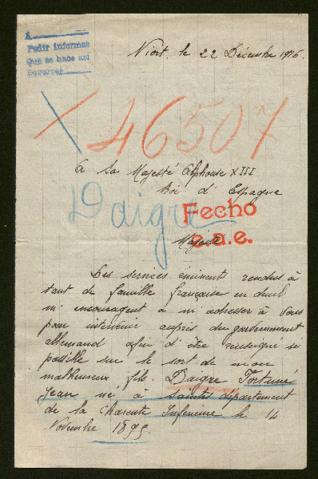 A
Pedir informes
Que se hace así
Niort le 22 Décembre 1916.
46507
A Sa Majesté Alphonse XIII
Roi d'Espagne
Daigre
Fecho
e.a.e.
Majesté
Les services éminent rendus à
tant de famille française en deuil
m'encouragent à m'adresser à Vous
pour intervenir auprès du gouvernement
allemand afin d'être renseigné si
possible sur le sort de mon
malheureux fils. Daigre Fortuné
Jean né à Saintes département
de la Charente Inférieure le 14
Novembre 1895